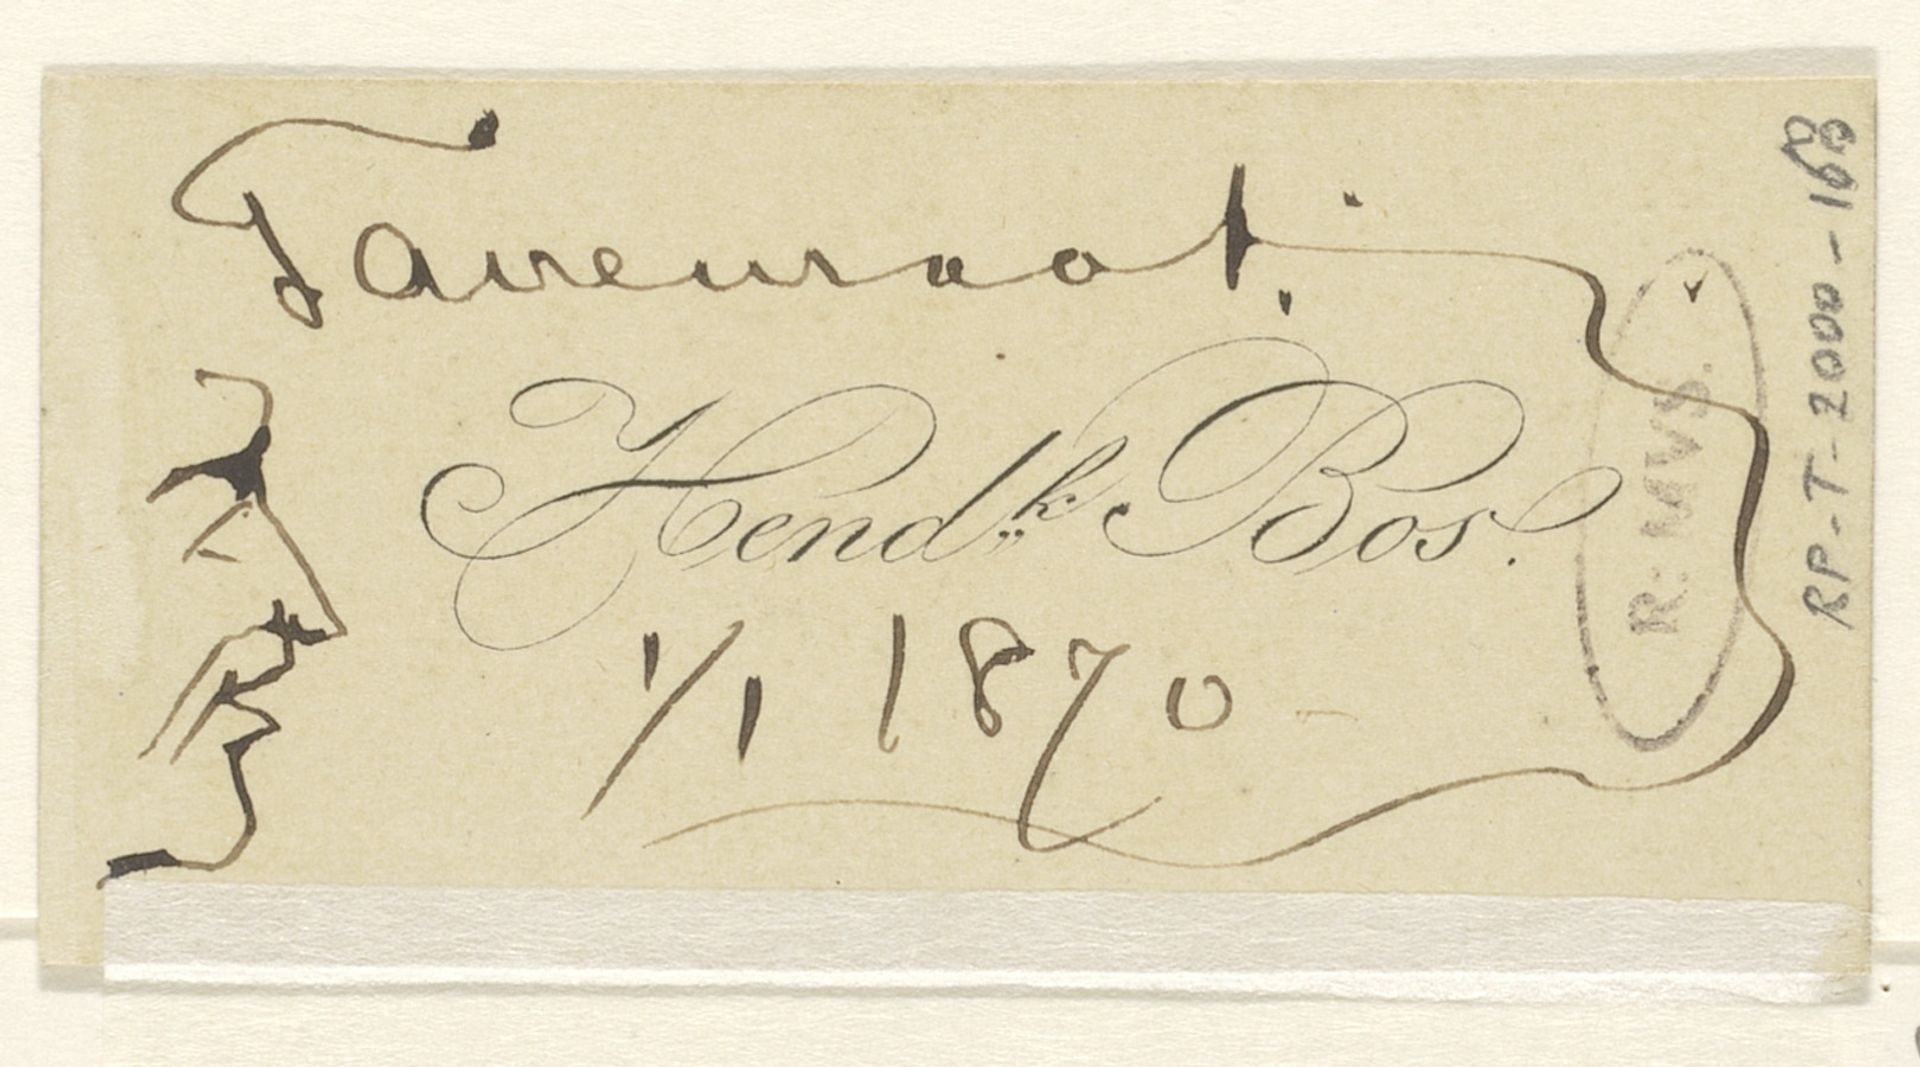 Hendk Bos.
1/1 1870
R: MVS.
RP-T-2000-168